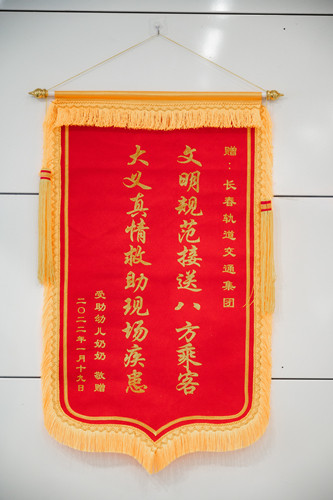 赠：长春轨道交通集团
文明规范接送八方乘客
大义真情救助现场疾患
受助幼儿奶奶 敬赠
二〇二二年一月十九日